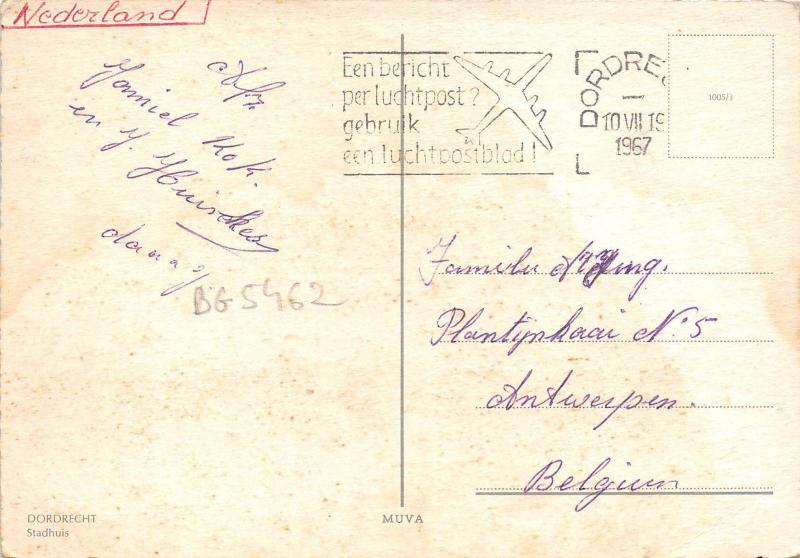 Nederland
Afz.
Familie Kok.
en J.
Een bericht
per luchtpost?
gebruik
een luchtpostblad!
DORDREC
10 VII 19
1967
1005/3
BG5462
Familie
Plantijnkaai No 5
Antwerpen.
Belgium
DORDRECHT
Stadhuis
MUVA